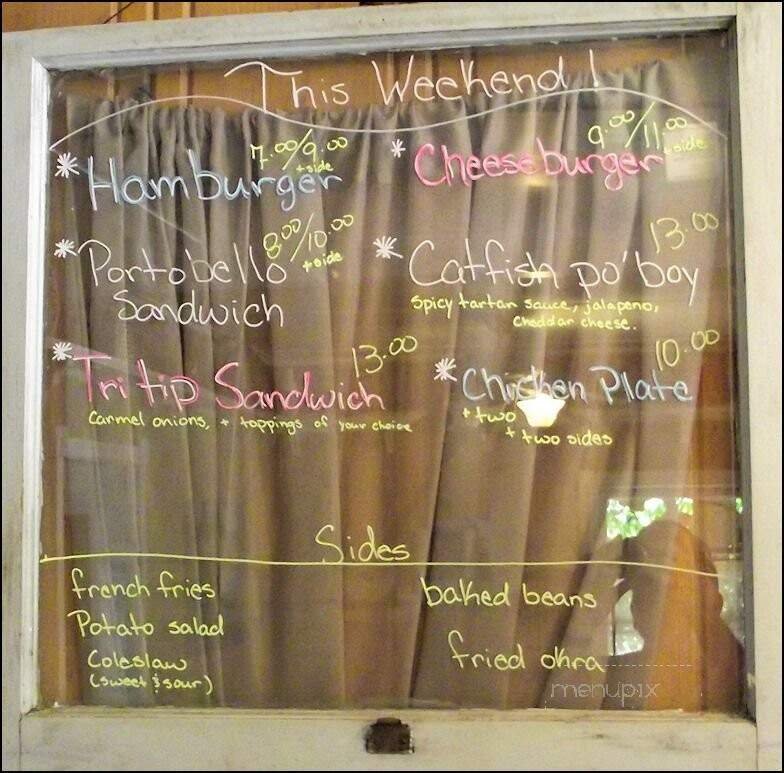 This Weekend!
* Hamburger 7.00/9.00 + side
* Cheeseburger 9.00/11.00 + side
* Portobello Sandwich 8.00/10.00 + side
* Catfish po'boy 13.00
Spicy tartar sauce, jalapeno,
cheddar cheese.
* Tri tip Sandwich 13.00
Carmel onions, + toppings of your choice
* Chicken Plate 10.00
+ two
+ two sides
Sides
french fries
Potato salad
Coleslaw
(sweet & sour)
baked beans
fried okra
menupix